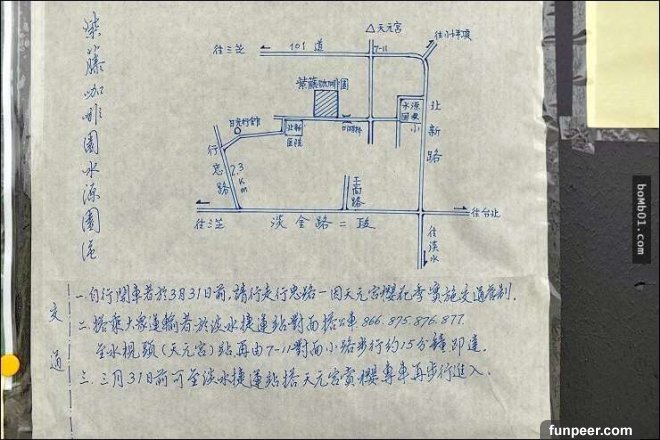 紫藤咖啡園水源園區
△天元宮
往三芝
101道
7-11
往小坪頂
紫藤咖啡園
水源國小
北新路
日光行館
北新醫院
行忠路
2.3Km
工商路
往三芝
淡金路二段
往台北
往淡水
交通
一.自行開車者於3月31日前,請行走行忠路-因天元宮櫻花季實施交通管制.
二.搭乘大眾運輸者於淡水捷運站對面搭公車866.875.876.877
至水梘頭(天元宮)站再由7-11對面小路步行約15分鐘即達.
三.三月31日前可至淡水捷運站搭天元宮賞櫻專車再步行進入.
bomb01.com
funpeer.com